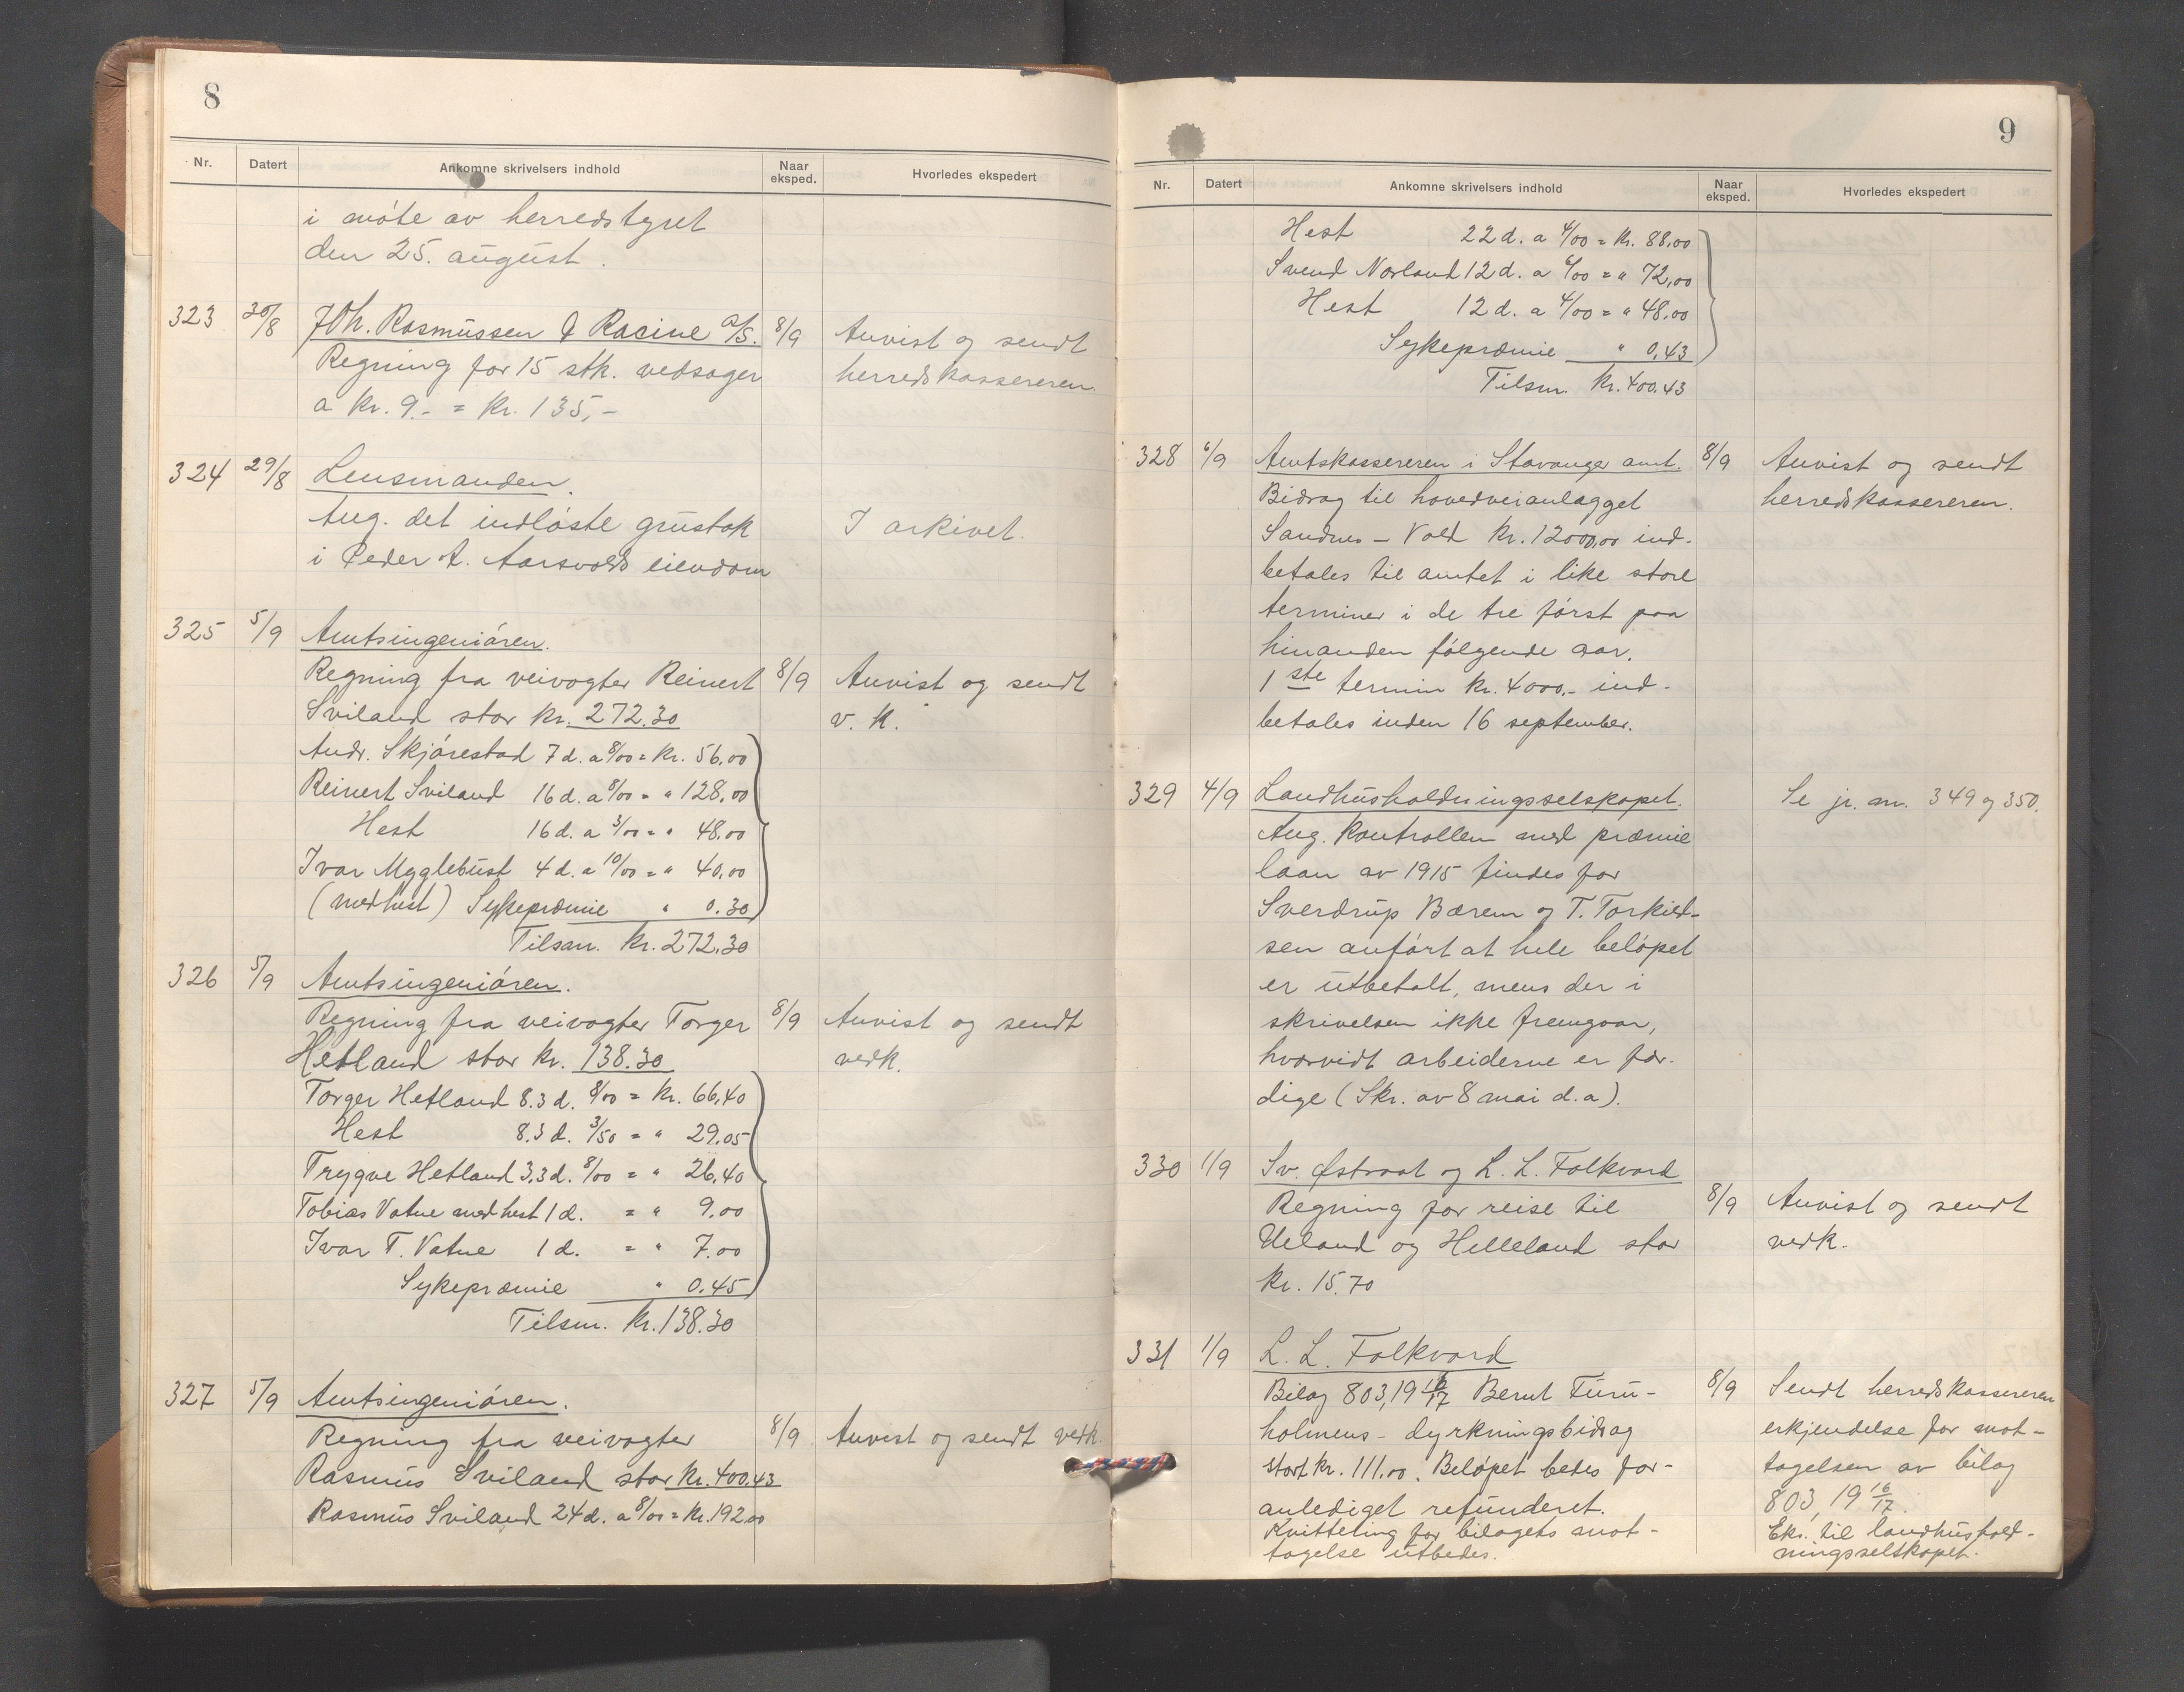 8
Nr. Datert Ankomne skrivelsers indhold Naar eksped. Hvorledes ekspedert
i møte av herredstyret
den 25. august.
323 30/8 Joh. Rasmussen & Racine A/S. 8/9 Anvist og sendt
Regning for 15 stk. vedsager herredskassereren.
a kr. 9.- = kr. 135,-
324 29/8 Lensmanden.
Ang. det indløste grustak I arkivet.
i Peder A. Aarsvolds eiendom
325 5/9 Amtsingeniøren.
Regning fra veivogter Reinert 8/9 Anvist og sendt
Sviland stor kr. 272.30 v. k.
Andr. Skjørestad 7 d. a 8/00 = kr. 56.00
Reinert Sviland 16 d. a 8/00 = " 128,00
Hest 16 d. a 3/00 = " 48.00
Ivar Mgglebust 4 d. a 10/00 = " 40,00
(med hest) Sykepræmie " 0.30
Tilsm. kr. 272.30
326 5/9 Amtsingeniøren.
Regning fra veivogter Torger 8/9 Anvist og sendt
Hetland stor kr. 138.30 vedk.
Torger Hetland 8.3 d. 8/00 = kr. 66,40
Hest 8.3 d. 3/50 = " 29.05
Trygve Hetland 3,3 d. 8/00 = " 26,40
Tobias Vatne med hest 1 d. = " 9.00
Ivar T. Vatne 1 d. = " 7.00
Sykepræmie " 0.45
Tilsm. kr. 138.30
327 5/9 Amtsingeniøren.
Regning fra veivogter 8/9 Anvist og sendt vedk.
Rasmus Sviland stor kr. 400.43
Rasmus Sviland 24 d. a 8/00 = kr. 192.00
9
Nr. Datert Ankomne skrivelsers indhold Naar eksped. Hvorledes ekspedert
Hest 22 d. a 4/00 = kr. 88,00
Svend Norland 12 d. a 6/00 = " 72,00
Hest 12 d. a 4/00 = " 48.00
Sykepræmie " 0,43
Tilsm. kr. 400.43
328 6/9 Amtskassereren i Stavanger amt. 8/9 Anvist og sendt
Bidrag til hovedveianlægget herredskassereren.
Sandnes - Vold kr. 12000,00 ind-
betales til amtet i like store
terminer i de tre først paa
hinanden følgende aar.
1ste termin kr. 4000.- ind-
betales inden 16 september.
329 4/9 Landhusholdningsselskapet. Se jr. nr. 349 og 350.
Ang. kontrollen med præmie
laan av 1915 findes for
Sverdrup Bærem og T. Torkild-
sen anført at hele beløpet
er utbetalt, mens der i
skrivelsen ikke fremgaar,
hvorvidt arbeiderne er fær-
dige (Skr. av 8 mai d.a).
330 1/9 Sv. Østraat og L. L. Folkvord
Regning for reise til 8/9 Anvist og sendt
Ueland og Helleland stor vedk.
kr. 15.70
331 1/9 L. L. Folkvord
Bilag 803, 19 16/17 Bernt Furu- 8/9 Sendt herredskassereren
holmens - dyrkningsbidrag erkjendelse for mot-
stort kr. 111.00. Beløpet bedes for- tagelsen av bilag
anlediget refunderet. 803, 19 16/17.
Kvittering for bilagets mot- Eks. til landhushold-
tagelse utbedes. ningsselskapet.